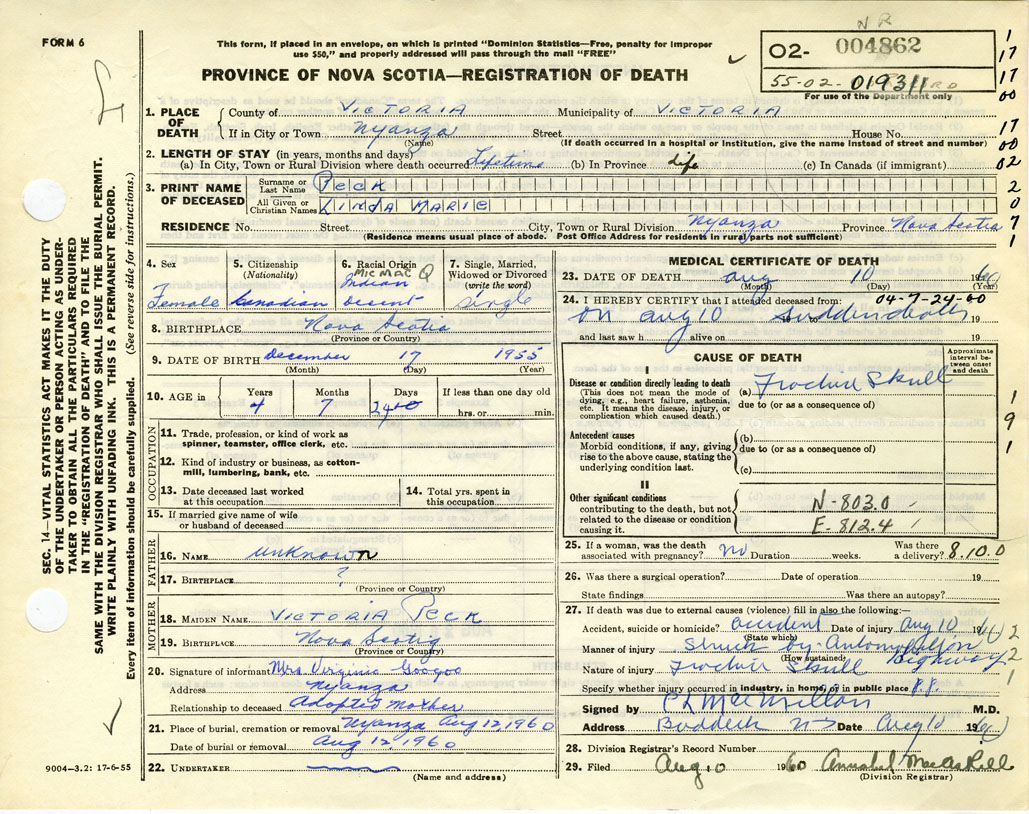 FORM 6
This form, if placed in an envelope, on which is printed "Dominion Statistics—Free, penalty for improper
use $50," and properly addressed will pass through the mail "FREE"
PROVINCE OF NOVA SCOTIA—REGISTRATION OF DEATH
NR
02- 004862
55-02-019311 RD
For use of the Department only
1
17
17
00
17
00
02
2
0
7
1
1
9
1
2
2
1
SEC. 14—VITAL STATISTICS ACT MAKES IT THE DUTY
OF THE UNDERTAKER OR PERSON ACTING AS UNDER-
TAKER TO OBTAIN ALL THE PARTICULARS REQUIRED
IN THE "REGISTRATION OF DEATH" AND FILE THE
SAME WITH THE DIVISION REGISTRAR WHO SHALL ISSUE THE BURIAL PERMIT.
WRITE PLAINLY WITH UNFADING INK. THIS IS A PERMANENT RECORD.
Every item of information should be carefully supplied. (See reverse side for instructions.)
1. PLACE OF DEATH
County of VICTORIA Municipality of VICTORIA
If in City or Town Nyanza Street House No.
(Name) (If death occurred in a hospital or institution, give the name instead of street and number)
2. LENGTH OF STAY (in years, months and days)
(a) In City, Town or Rural Division where death occurred Lifetime (b) In Province life (c) In Canada (if immigrant)
3. PRINT NAME OF DECEASED
Surname or Last Name PECK
All Given or Christian Names LINDA MARIE
RESIDENCE No. Street City, Town or Rural Division Nyanza Province Nova Scotia
(Residence means usual place of abode. Post Office Address for residents in rural parts not sufficient)
4. Sex
Female
5. Citizenship
(Nationality)
Canadian
6. Racial Origin
MICMAC Q
Indian
Descent
7. Single, Married,
Widowed or Divorced
(write the word)
Single
8. BIRTHPLACE Nova Scotia
(Province or Country)
9. DATE OF BIRTH December 17 1955
(Month) (Day) (Year)
10. AGE in
Years Months Days If less than one day old
4 7 24 hrs. or min.
OCCUPATION
11. Trade, profession, or kind of work as
spinner, teamster, office clerk, etc.
12. Kind of industry or business, as cotton-
mill, lumbering, bank, etc.
13. Date deceased last worked
at this occupation
14. Total yrs. spent in
this occupation
15. If married give name of wife
or husband of deceased
FATHER
16. NAME unknown
17. BIRTHPLACE ?
(Province or Country)
MOTHER
18. MAIDEN NAME VICTORIA PECK
19. BIRTHPLACE Nova Scotia
(Province or Country)
20. Signature of informant Mrs. Virginia Googoo
Address Nyanza
Relationship to deceased Adopted Mother
21. Place of burial, cremation or removal Nyanza Aug 12, 1960
Date of burial or removal Aug 12, 1960
22. UNDERTAKER
(Name and address)
9004—3.2: 17-6-55
MEDICAL CERTIFICATE OF DEATH
23. DATE OF DEATH Aug 10 1960
(Month) (Day) (Year)
24. I HEREBY CERTIFY that I attended deceased from: 04-7-24-00
on Aug 10 19 to 19
and last saw h alive on 19
CAUSE OF DEATH
Approximate
interval be-
tween onset
and death
I
Disease or condition directly leading to death
(This does not mean the mode of
dying, e.g., heart failure, asthenia,
etc. It means the disease, injury, or
complication which caused death.)
(a) Skull
due to (or as a consequence of)
Antecedent causes
Morbid conditions, if any, giving
rise to the above cause, stating the
underlying condition last.
(b)
due to (or as a consequence of)
(c)
II
Other significant conditions
contributing to the death, but not
related to the disease or condition
causing it.
N-803.0
E-812.4
25. If a woman, was the death
associated with pregnancy? no Duration weeks. Was there
a delivery? 8.10.0
26. Was there a surgical operation? Date of operation 19
State findings Was there an autopsy?
27. If death was due to external causes (violence) fill in also the following:—
Accident, suicide or homicide? accident Date of injury Aug 10 1960
(State which)
Manner of injury Struck by Automobile
(How sustained) Highway
Nature of injury Skull
Specify whether injury occurred in industry, in home, or in public place P.P.
Signed by C L MacMillan M.D.
Address Baddeck NS Date Aug 10 1960
28. Division Registrar's Record Number
29. Filed Aug 10 1960 Annabel MacAskill
(Division Registrar)